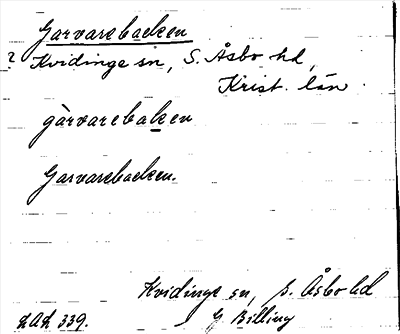 Garvarebacken
? Kvidinge sn, S. Åsbo hd,
Krist. län.
gàrvarebaken
Garvarebacken.
Kvidinge sn, S. Åsbo hd
G Billing
LAL 339.